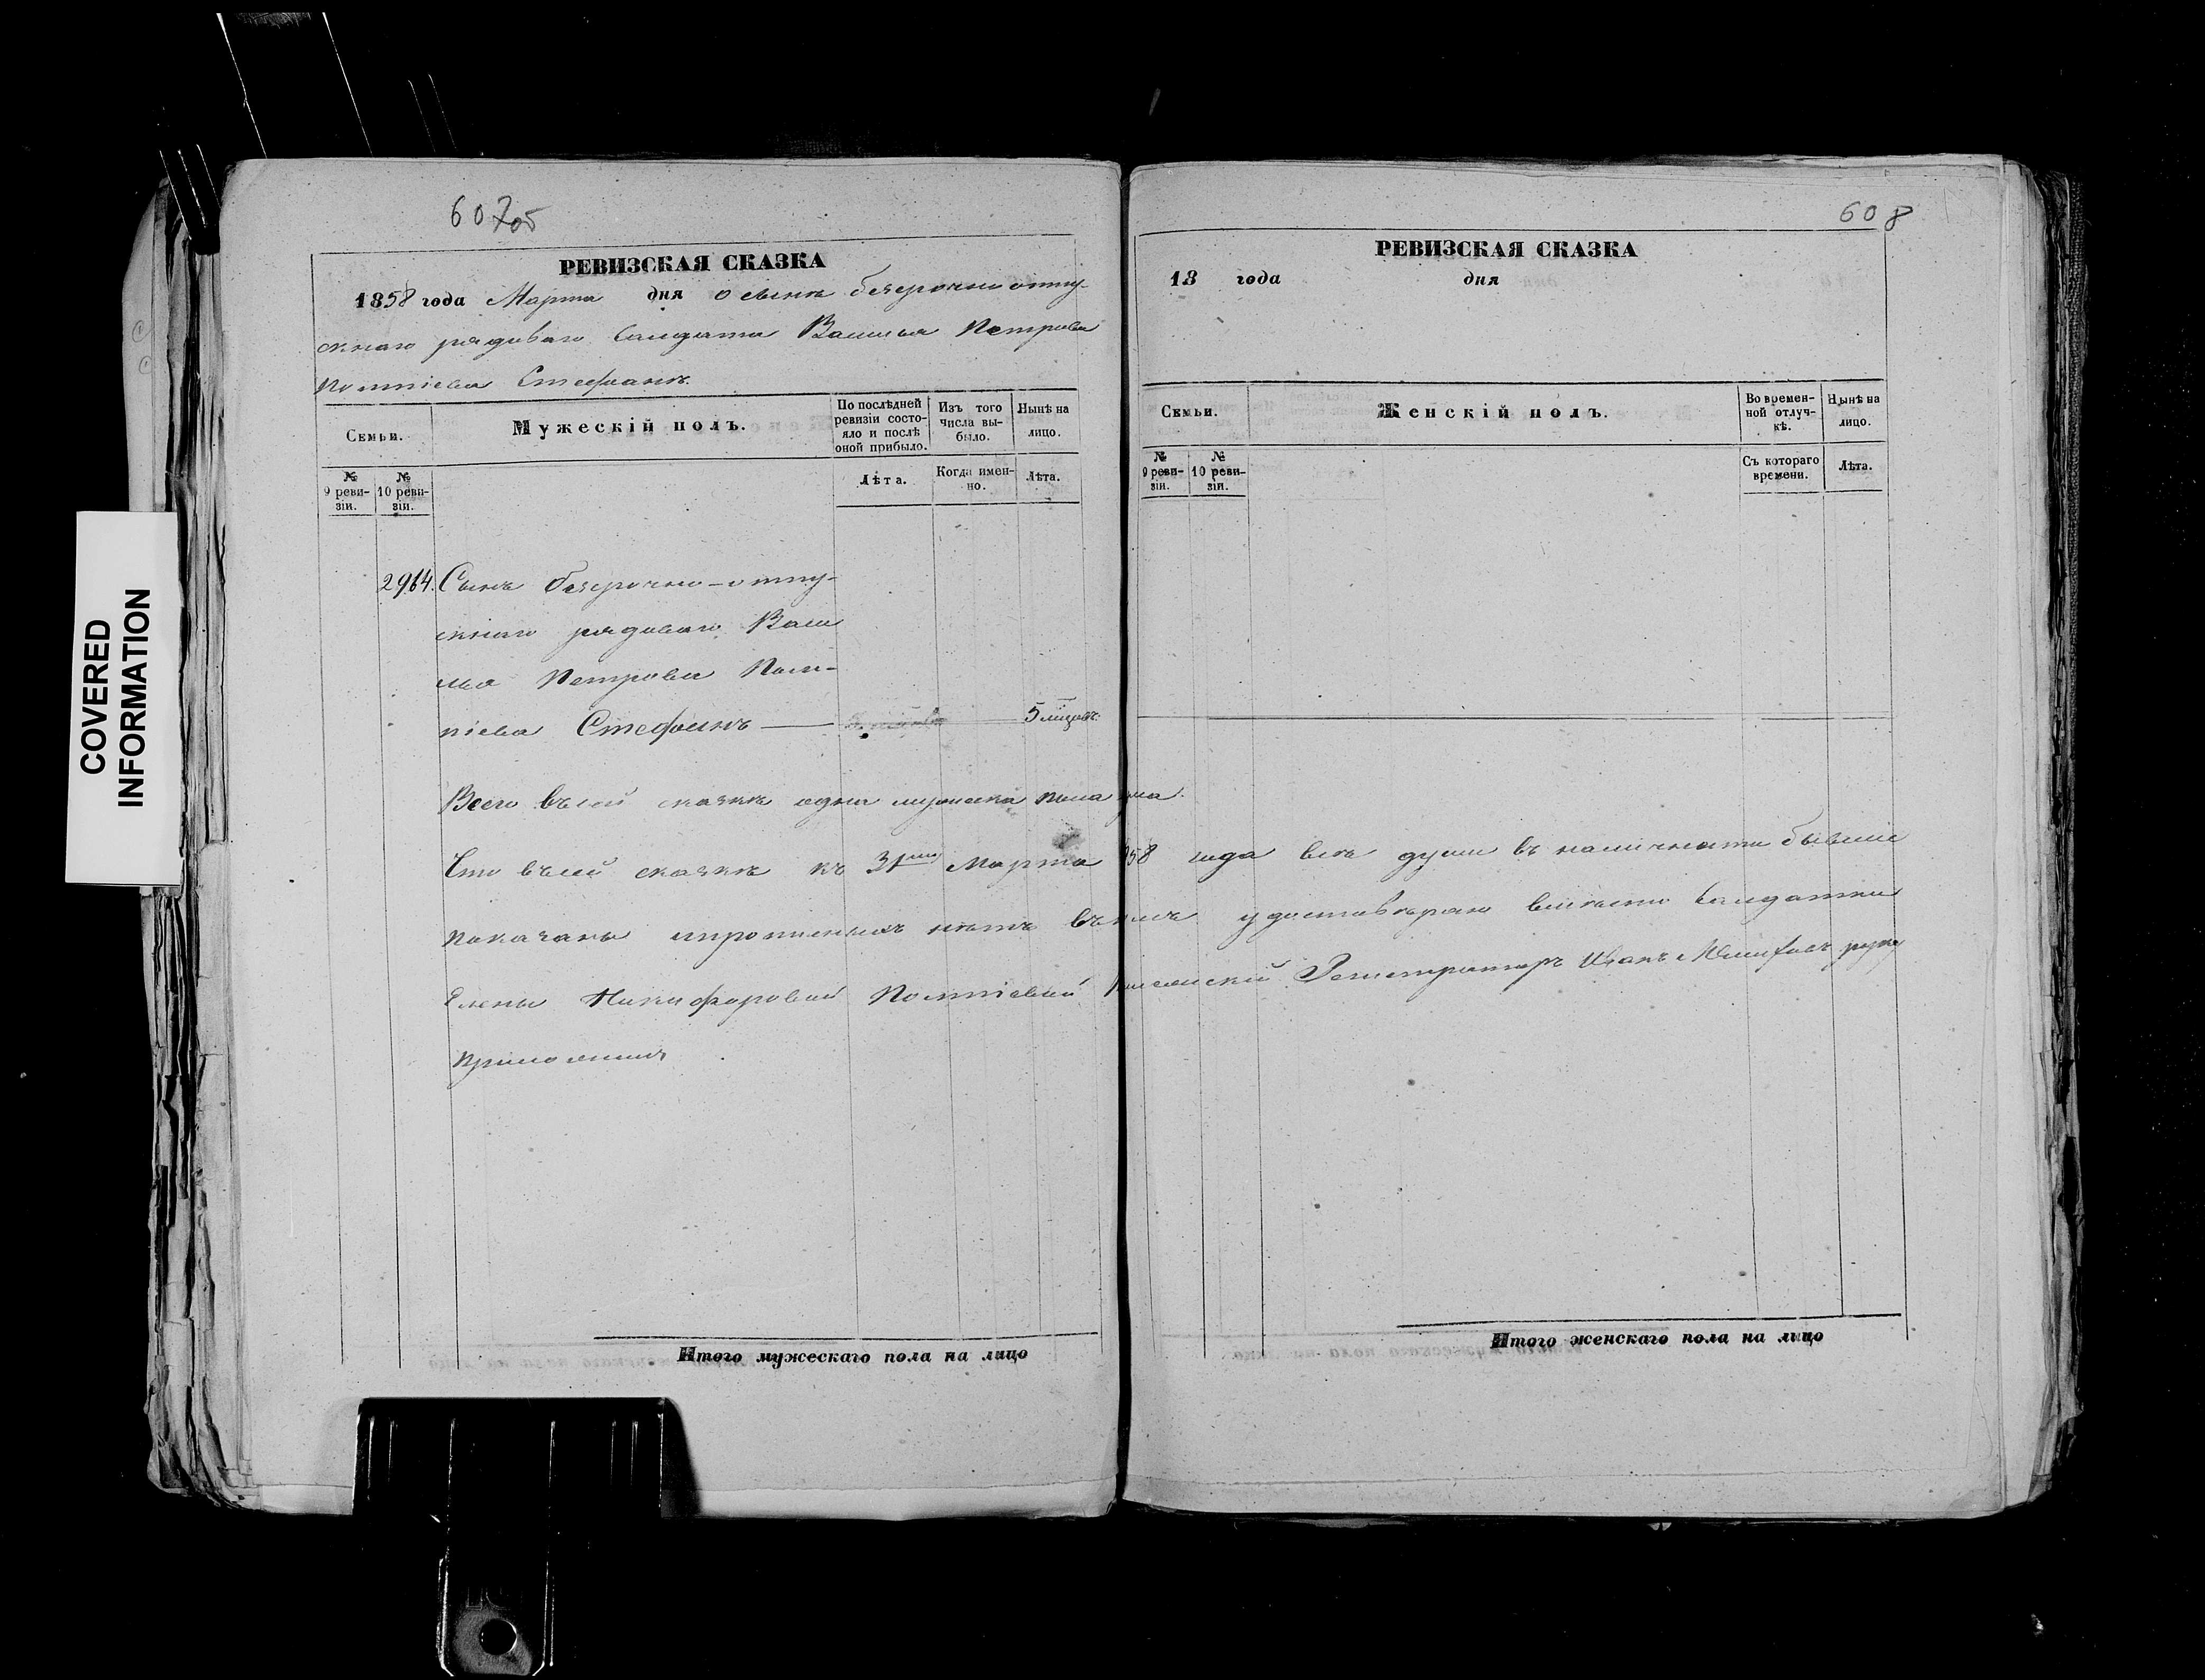 607об
РЕВИЗСКАЯ СКАЗКА
1858 года Марта дня о сынѣ безсрочно отпу-
скнаго рядоваго Солдата Василья Петрова
Полтіева Стефанѣ.
Семьи.
Мужескій полъ.
По послѣдней ревизіи состо-яло и послѣ оной прибыло.
Изъ того числа вы-было.
Нынѣ на лицо.
№ 9 реви-зіи.
№ 10 реви-зіи.
Лѣта.
Когда имен-но.
Лѣта.
2964. Сынъ безсрочно-отпу-
скнаго рядоваго Васи
лья Петрова Пол-
тіева Стефанъ — 5 мѣсяц.
Всего въ сей сказкѣ одна мужска пола душа.
Что въ сей сказкѣ къ 31 Марта 858 года всѣ души въ наличности бывшие
показаны и прописныхъ нѣтъ въ томъ удостовѣряю вмѣсто Солдатки
Елены Никифоровой Полтіевой Коллежскій Регистраторъ Иванъ руку
приложилъ
Итого мужескаго пола на лицо
608
РЕВИЗСКАЯ СКАЗКА
18 года дня
Семьи.
Женскій полъ.
Во времен-ной отлуч-кѣ.
Нынѣ на лицо.
№ 9 реви-зіи.
№ 10 реви-зіи.
Съ котораго времени.
Лѣта.
Итого женскаго пола на лицо
COVERED
INFORMATION